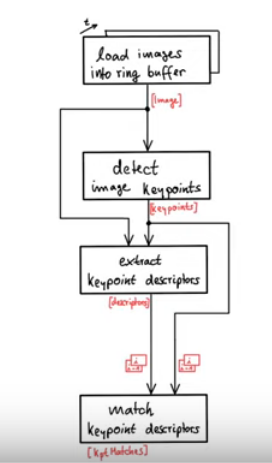 t
load images
into ring buffer
[Image]
detect
image keypoints
[keypoints]
extract
keypoint descriptors
[descriptors]
match
keypoint descriptors
[KptMatches]